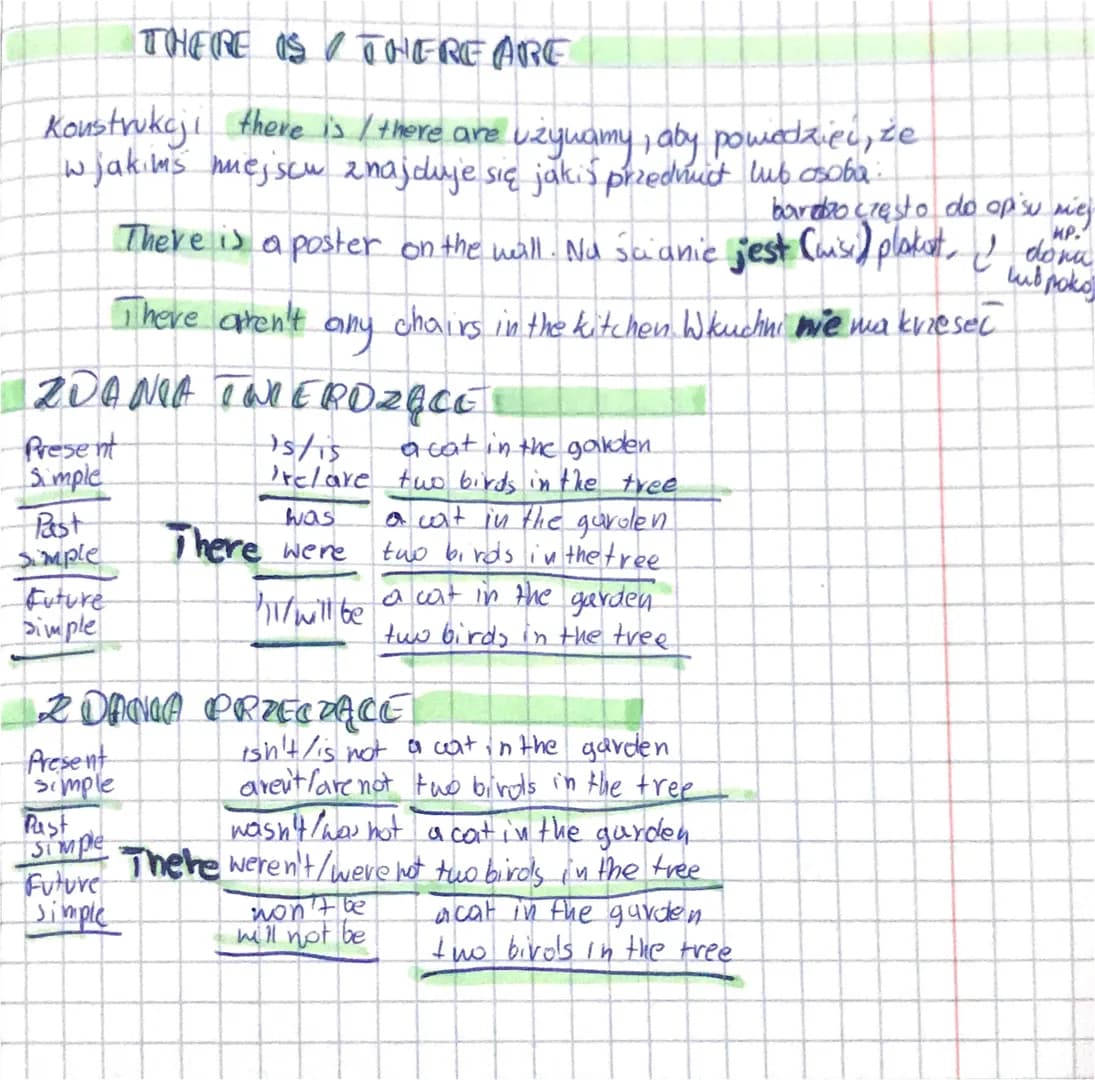 THERE IS / THERE ARE
Konstrukcji there is / there are używamy, aby powiedzieć, że
w jakimś miejscu znajduje się jakiś przedmiot lub osoba:
bardzo często do opisu miej
There is a poster on the wall. Na ścianie jest (wisi) plakat.
np.
domu
lub pokoj
There aren't any chairs in the kitchen. W kuchni nie ma krzeseł
ZDANIA TWIERDZĄCE
Present 's/is a cat in the garden
simple 're/are two birds in the tree
Past was a cat in the garden
simple There were two birds in the tree
Future 'll/will be a cat in the garden
simple two birds in the tree
ZDANIA PRZECZĄCE
Present isn't/is not a cat in the garden
simple aren't/are not two birds in the tree
Past wasn't/was not a cat in the garden
simple There weren't/were not two birds in the tree
Future won't be a cat in the garden
simple will not be two birds in the tree